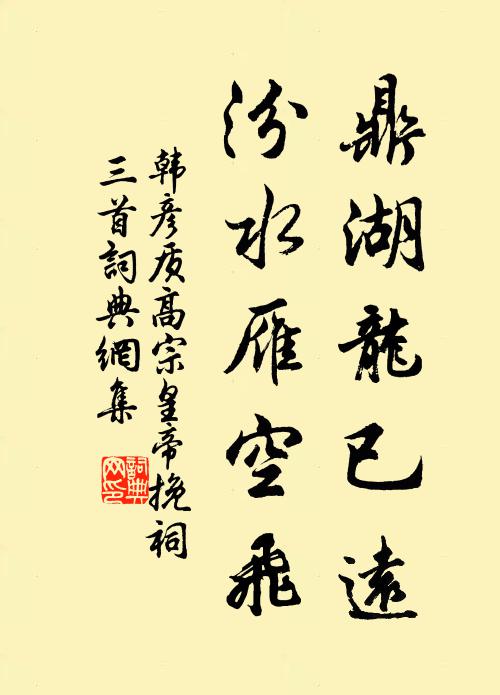 鼎湖龍已遠
汾水雁空飛
韩彦质高宗皇帝挽祠
三首詞典網集
詞典
网印